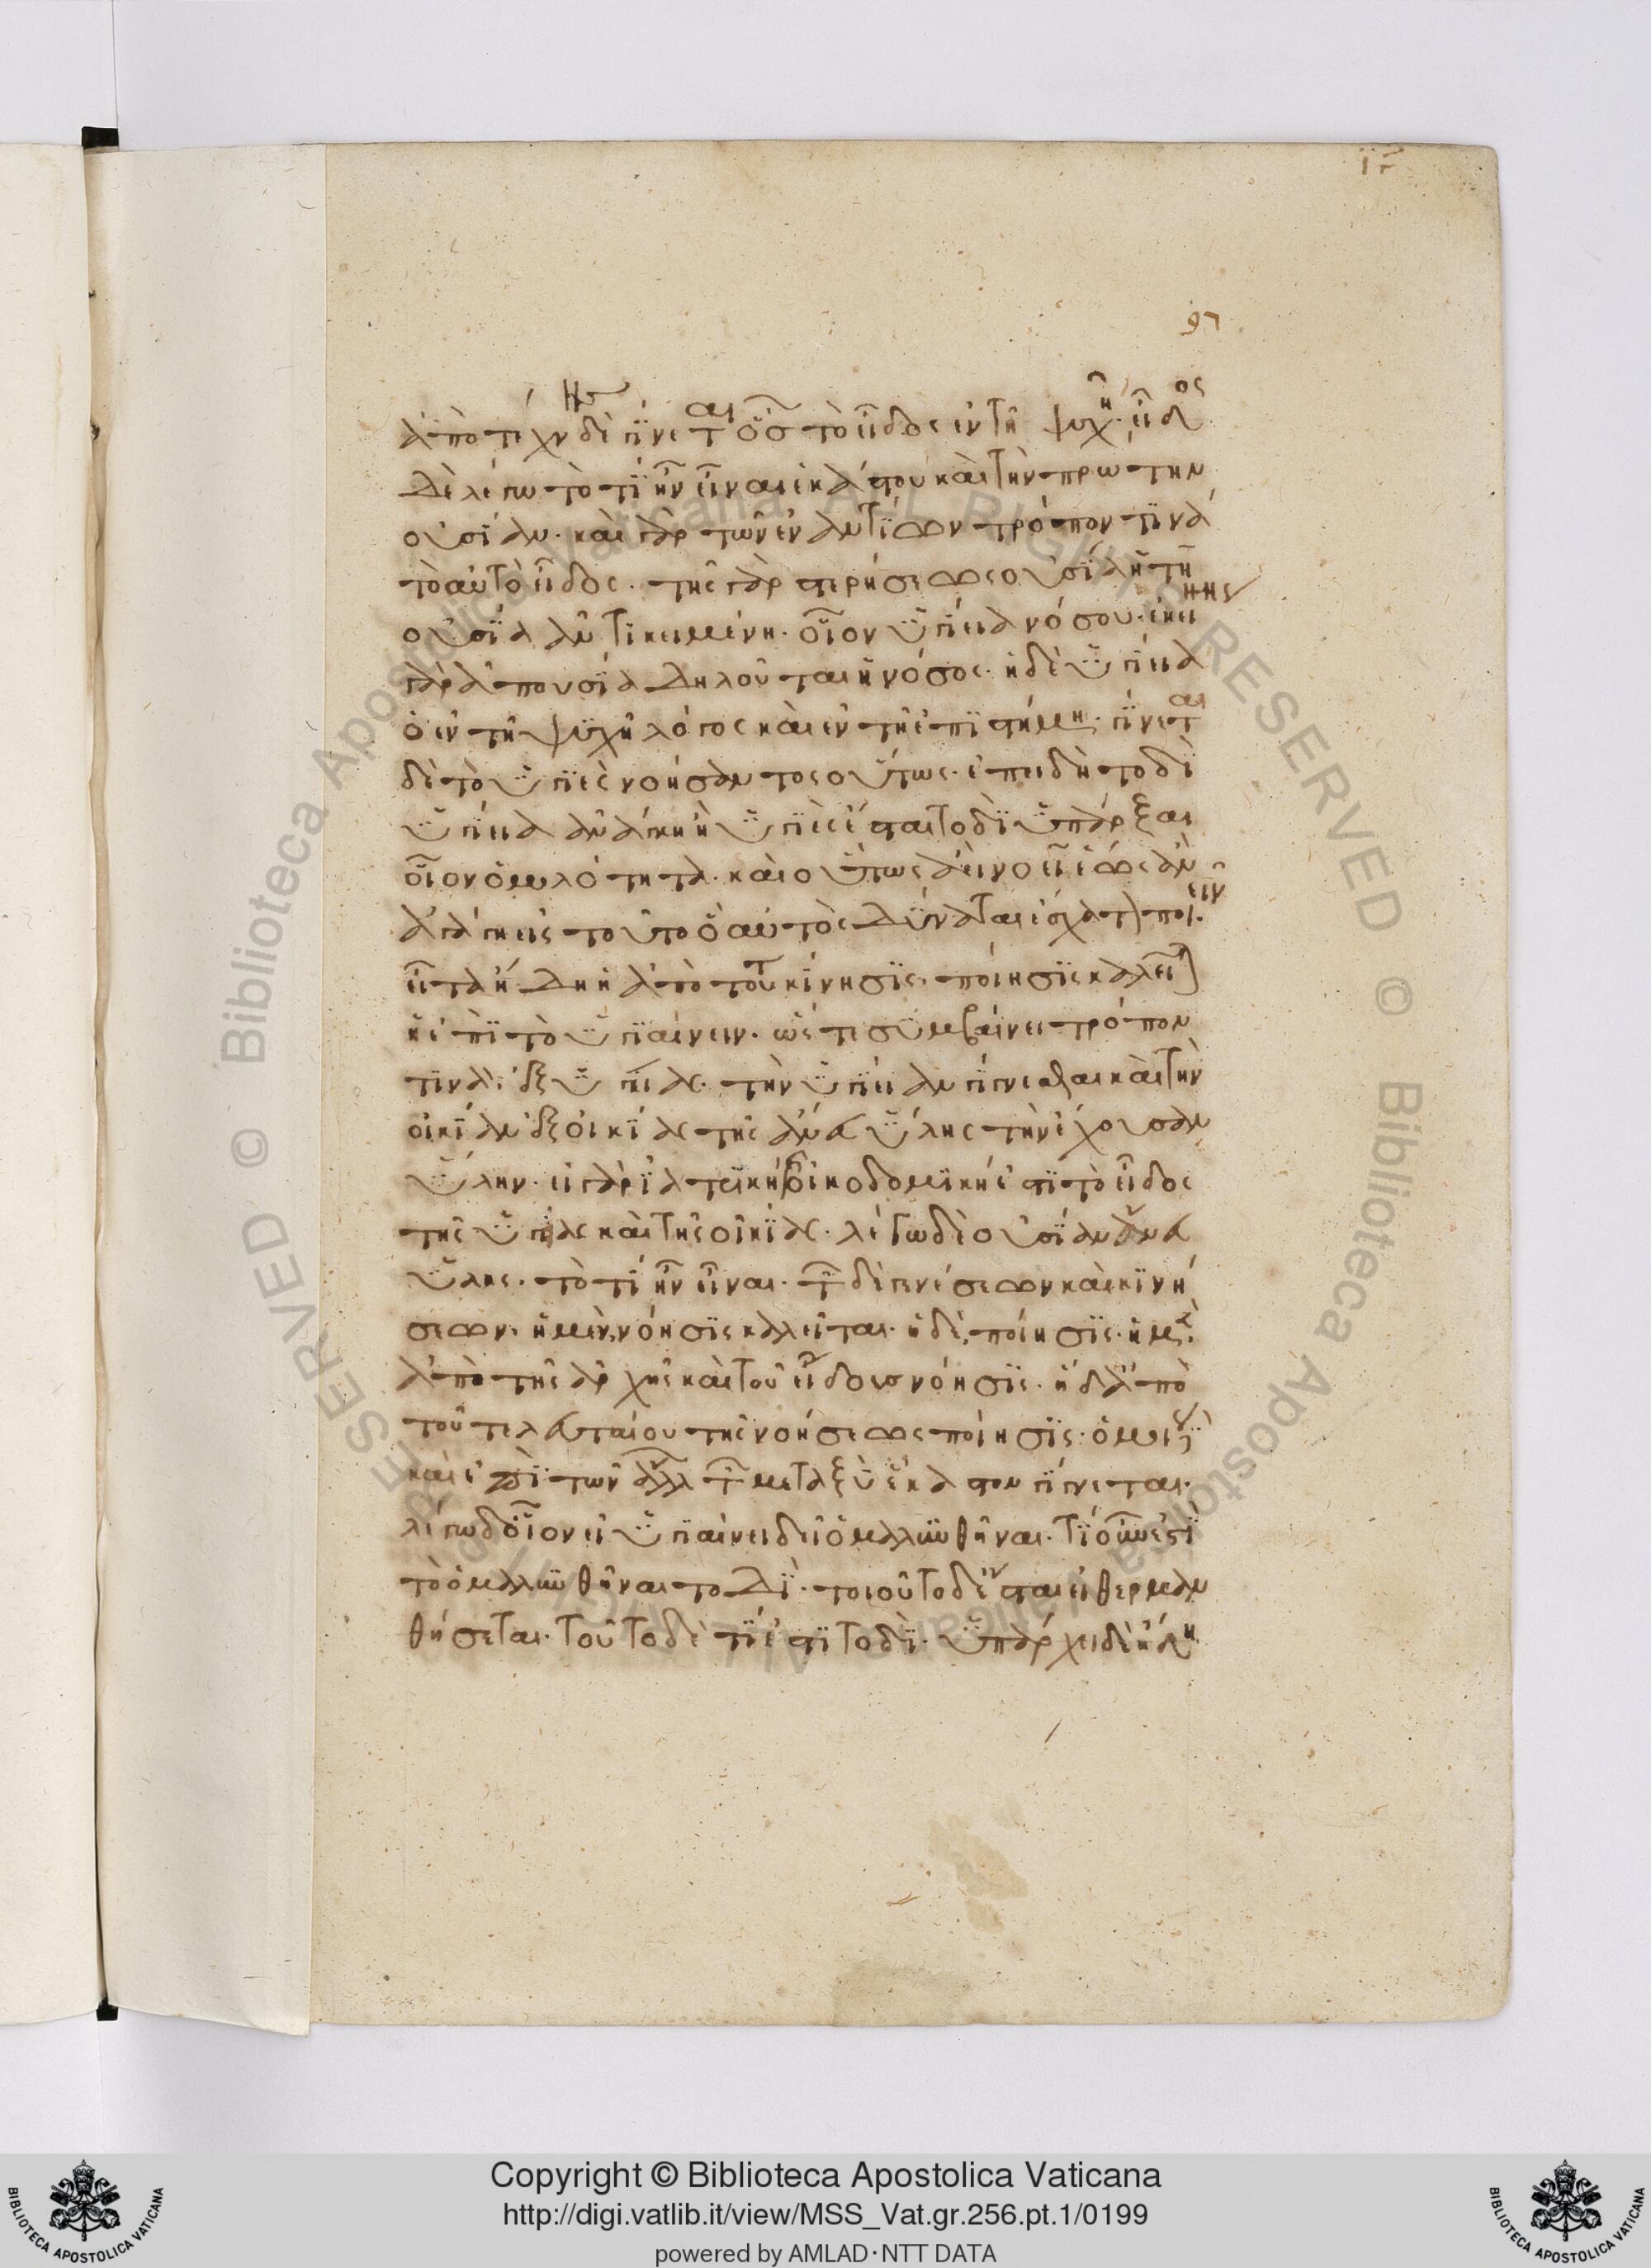 97
ἀπὸ τέχνης δὲ γίνεται ὅσων τὸ εἶδος ἐν τῇ ψυχῇ· εἶδος
δὲ λέγω τὸ τί ἦν εἶναι ἑκάστου καὶ τὴν πρώτην
οὐσίαν· καὶ γὰρ τῶν ἐναντίων τρόπον τινὰ
τὸ αὐτὸ εἶδος· τῆς γὰρ στερήσεως οὐσία ἡ
οὐσία ἀντικειμένη· οἷον ὑγίεια νόσου· ἐκείνης
γὰρ ἀπουσίᾳ δηλοῦται ἡ νόσος· ἡ δὲ ὑγίεια
ὁ ἐν τῇ ψυχῇ λόγος καὶ ἐν τῇ ἐπιστήμῃ· γίνεται
δὲ τὸ ὑγιὲς νοήσαντος οὕτως· ἐπειδὴ τοδὶ
ὑγίεια ἀνάγκη ἢ ὑγιὲς ἔσται τοδὶ ὑπάρξαι
οἷον ὁμαλότητα· καὶ οὕτως ἀεὶ νοεῖ ἕως ἂν
ἀγάγῃ εἰς τοῦτο ὃ αὐτὸς δύναται ἔσχατον ποιεῖν
εἶτα ἤδη ἡ ἀπὸ τούτου κίνησις, ποίησις καλεῖται
ἡ ἐπὶ τὸ ὑγιαίνειν· ὥστε συμβαίνει τρόπον
τινὰ ἐξ ὑγιείας τὴν ὑγίειαν γίγνεσθαι καὶ τὴν
οἰκίαν ἐξ οἰκίας τῆς ἄνευ ὕλης τὴν ἔχουσαν
ὕλην· ἡ γὰρ ἰατρική καὶ ἡ οἰκοδομική ἐστι τὸ εἶδος
τῆς ὑγιείας καὶ τῆς οἰκίας· λέγω δὲ οὐσίαν ἄνευ
ὕλης· τὸ τί ἦν εἶναι· τῶν δὲ γενέσεων καὶ κινή
σεων· ἡ μὲν, νόησις καλεῖται· ἡ δὲ, ποίησις· ἡ μὲν
ἀπὸ τῆς ἀρχῆς καὶ τοῦ εἴδους νόησις· ἡ δ᾽ ἀπὸ
τοῦ τελευταίου τῆς νοήσεως ποίησις· ὁμοίως
καὶ ἐπὶ τῶν ἄλλων τῶν μεταξὺ ἕκαστον γίγνεται·
λέγω δ᾽ οἷον εἰ ὑγιαίνει δεῖ ὁμαλυνθῆναι· τί οὖν ἐστὶ
τὸ ὁμαλυνθῆναι τοδί· τοιοῦτο δ᾽ ἔσται εἰ θερμαν
θήσεται· τοῦτο δὲ τί ἐστι τοδί· ὑπάρχει δὲ
Copyright © Biblioteca Apostolica Vaticana
http://digi.vatlib.it/view/MSS_Vat.gr.256.pt.1/0199
powered by AMLAD·NTT DATA
BIBLIOTECA APOSTOLICA VATICANA
BIBLIOTECA APOSTOLICA VATICANA